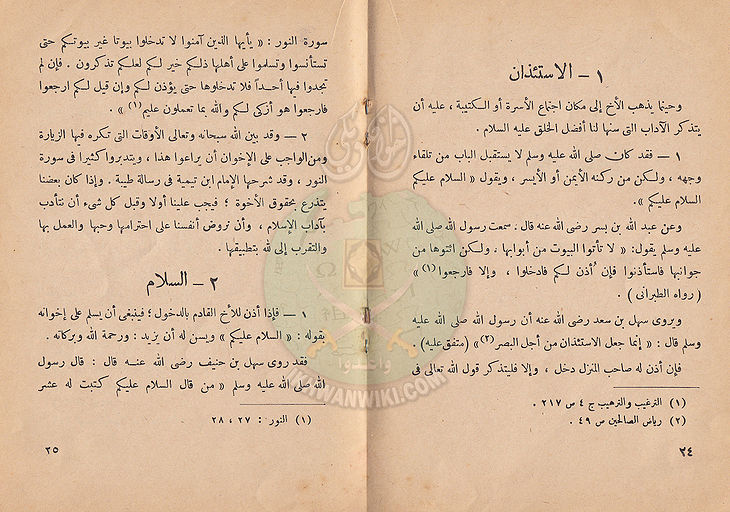 ١ – الاستئذان
وحينما يذهب الأخ إلى مكان اجتماع الأسرة أو الكتيبة ، عليه أن
يتذكر الآداب التى سنها لنا أفضل الخلق عليه السلام .
١ – فقد كان صلى الله عليه وسلم لا يستقبل الباب من تلقاء
وجهه ، ولكن من ركنه الأيمن أو الأيسر ، ويقول « السلام عليكم
السلام عليكم » .
وعن عبد الله بن بسر رضى الله عنه قال . سمعت رسول الله صلى الله
عليه وسلم يقول : « لا تأتوا البيوت من أبوابها . ولكن ائتوها من
جوانبها فاستأذنوا فإن أُذن لـكم فادخلوا ، وإلا فارجعوا (١) »
( رواه الطبرانى ) .
ويروى سهل بن سعد رضى الله عنه أن رسول الله صلى الله عليه
وسلم قال : « إنما جعل الاستئذان من أجل البصر (٢) » (متفق عليه) .
فإن أذن له صاحب المنزل دخل ، وإلا فليتذكر قول الله تعالى فى
(١) الترغيب والترهيب ج ٤ ص ٢١٧ .
(٢) رياض الصالحين ص ٤٩ .
٢٤
سورة النور : « يأيها الذين آمنوا لا تدخلوا بيوتا غير بيوتـكم حتى
تستأنسوا وتسلموا على أهلها ذلـكم خير لـكم لعلكم تذكرون . فإن لم
تجدوا فيها أحـداً فلا تدخلوها حتى يؤذن لـكم وإن قيل لـكم ارجعوا
فارجعوا هو أزكى لـكم والله بما تعملون عليم (١) » .
٢ – وقد بين الله سبحانه وتعالى الأوقات التى تـكره فيها الزيارة
ومن الواجب على الإخوان أن يراعوا هذا ، ويتدبروا كثيرا فى سورة
النور ، وقد شرحها الإمام ابن تيمية فى رسالة طيبة . وإذا كان بعضنا
يتذرع بحقوق الأخوة ؛ فيجب علينا أولا وقبل كل شىء أن نتأدب
بآداب الإسلام ، وأن نروض أنفسنا على احترامها وحبها والعمل بها
والتقرب إلى لله بتطبيقها .
٢ – السلام
١ – فإذا أذن للأخ القادم بالدخول ؛ فينبغى أن يسلم على إخوانه
بقوله : « السلام عليكم » ويسن له أن يزيد : ورحمة الله وبركاته .
فقد روى سهل بن حنيف رضى الله عنـه قال : قال رسول
الله صلى الله عليه وسلم « من قال السلام عليكم كتبت له عشر
(١) النور : ٢٧ ، ٢٨
٢٥
وأعدوا
IKHWANWIKI.COM